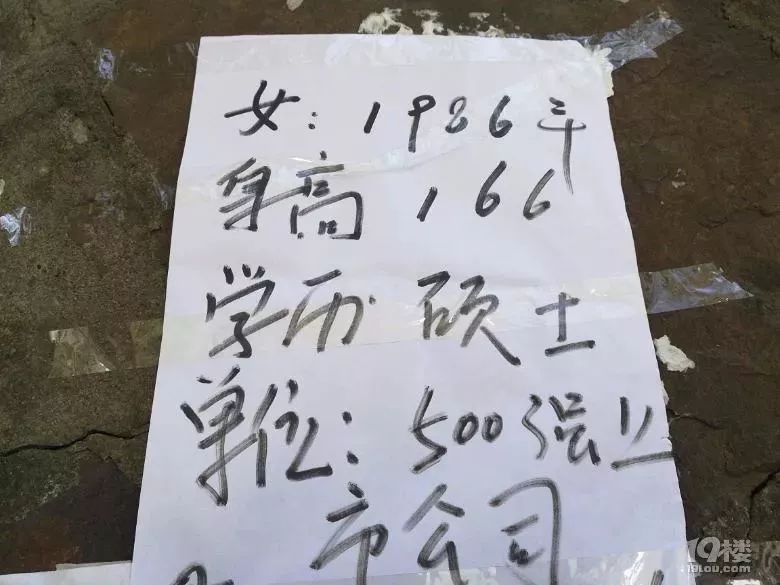 女：1986年
身高 166
学历 硕士
单位：500强上
市公司
19楼
19lou.com